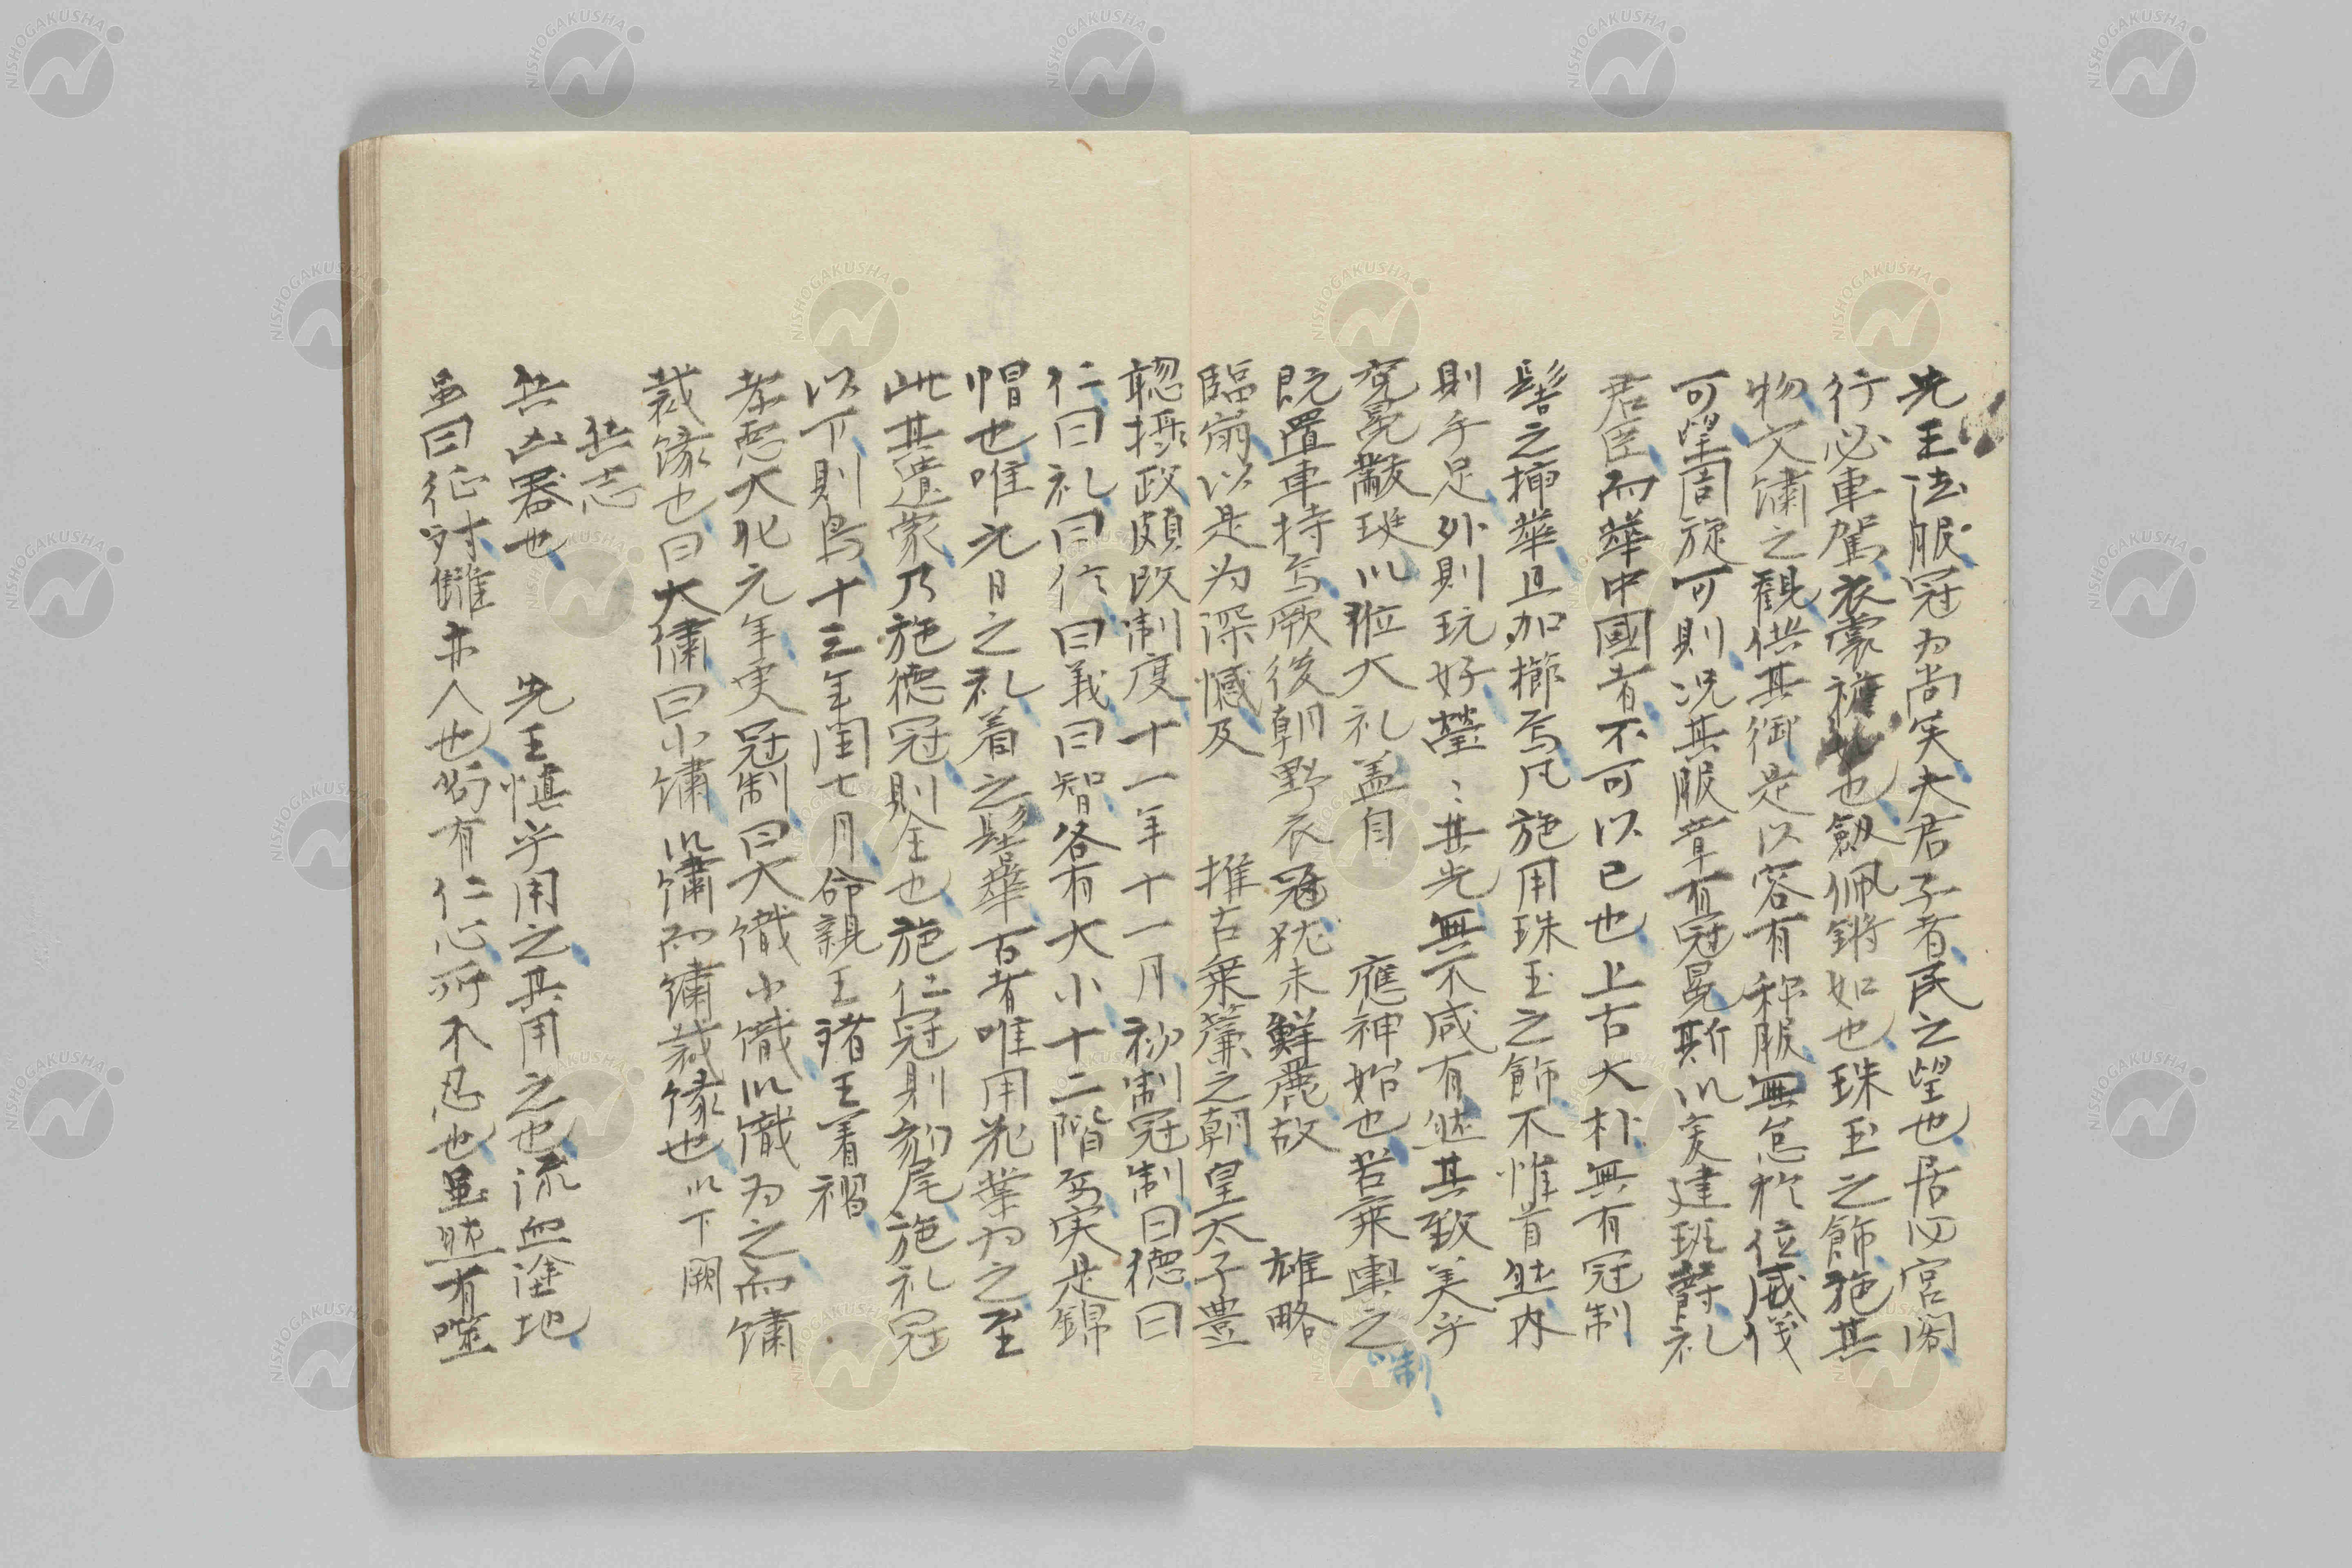 先王法服冠為尚矣夫君子者民之望也居必宮閣
行必車駕衣裳襜如也劔佩鏘如也珠玉之飾施其
物文繡之觀供其御是以容有称服無怠於位威儀
可望周旋可則況其服章有冠冕斯以爰建班爵礼
君臣而華中國者不可以已也上古大朴無有冠制
髻之挿華且加擳焉凡施用珠玉之飾不惟首然内
則手足外則玩好瑩〻其光無不咸有然其致美乎
冠冕黻珽以班大礼盖自 應神始也若乗輿之
制
既置車持焉厥後朝野衣冠猶未鮮麗故 雄略
臨崩以是为深憾及 推古乗簾之朝皇太子豊
聡摂政頗改制度十一年十一月初制冠制曰德曰
仁曰礼曰信曰義曰智各有大小十二階焉実是錦
帽也唯元日之礼着之髻華古者唯用花葉为之至
此其遺蒙乃施德冠則金也施仁冠則豹尾施礼冠
以下則鳥十三年閏七月命親王諸王着褶
孝悳大化元年更冠制曰大織小織以織为之而繡
裁縁也曰大繡曰小繡以繡而繡裁縁也以下闕
兵志
兵凶器也 先王慎乎用之其用之也流血塗地
虽曰征討讎亦人也苟有仁心所不忍也虽然有噬